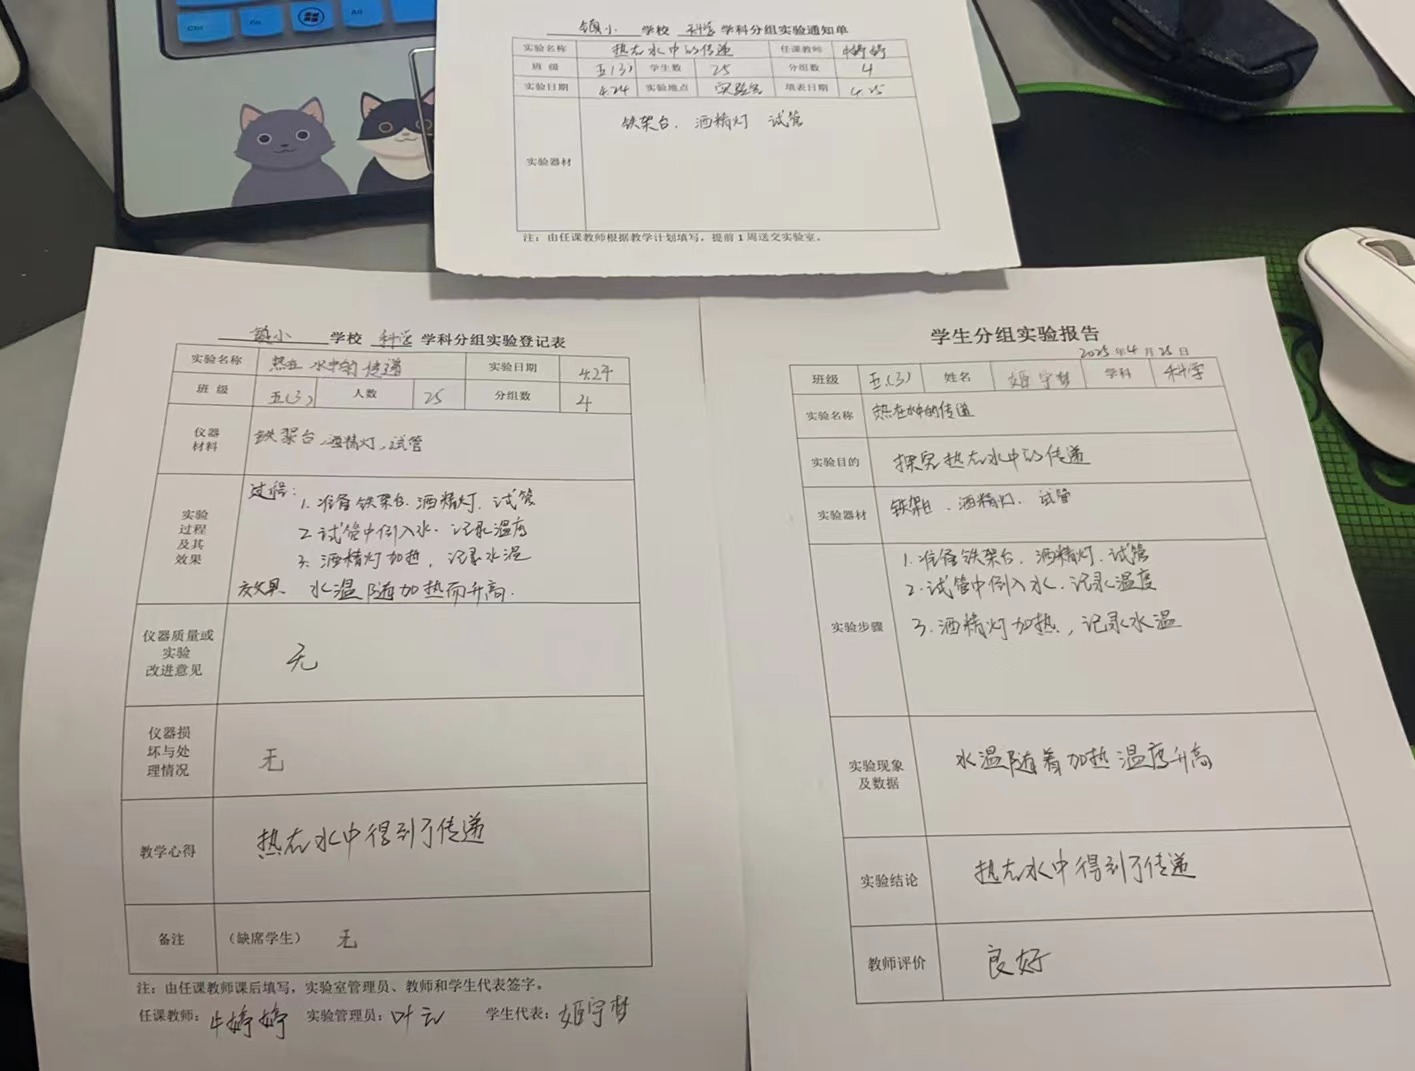 Ctrl
Fn
Alt
镇小 学校 科学 学科分组实验通知单
实验名称 热在水中的传递 任课教师 牛婷婷
班 级 五(3) 学生数 25 分组数 4
实验日期 4.24 实验地点 实验室 填表日期 4.25
实验器材 铁架台、酒精灯 试管
注：由任课教师根据教学计划填写，提前1周送交实验室。
镇小 学校 科学 学科分组实验登记表
实验名称 热在水中的传递 实验日期 4.24
班 级 五(3) 人数 25 分组数 4
仪器
材料
铁架台、酒精灯、试管
实验
过程
及其
效果
过程：1. 准备铁架台、酒精灯、试管
2. 试管中倒入水、记录温度
3. 酒精灯加热，记录水温
效果 水温随加热而升高.
仪器质量或
实验
改进意见
无
仪器损
坏与处
理情况
无
教学心得 热在水中得到了传递
备注 （缺席学生） 无
注：由任课教师课后填写，实验室管理员、教师和学生代表签字。
任课教师：牛婷婷 实验管理员：叶云 学生代表：姬宇梦
学生分组实验报告
2025 年 4 月 25 日
班级 五(3) 姓名 姬宇梦 学科 科学
实验名称 热在水中的传递
实验目的 探究热在水中的传递
实验器材 铁架台、酒精灯、试管
实验步骤
1. 准备铁架台、酒精灯、试管
2. 试管中倒入水、记录温度
3. 酒精灯加热，记录水温
实验现象
及数据
水温随着加热温度升高
实验结论 热在水中得到了传递
教师评价 良好